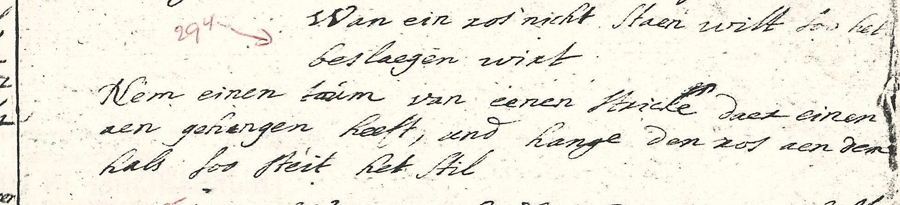 294
Wan ein ros nicht staen wilt soo het
beslaegen wirt
Nem einen toúm van eenen stricke daer einen
aen gehangen heeft, und hange den ros aen den
hals soo steit het stil